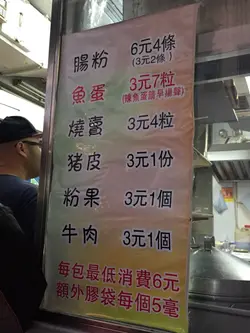 腸粉 6元4條
(3元2條)
魚蛋 3元7粒
燒賣 3元4粒
豬皮 3元1份
粉果 3元1個
牛肉 3元1個
每包最低消費6元
額外膠袋每個5毫